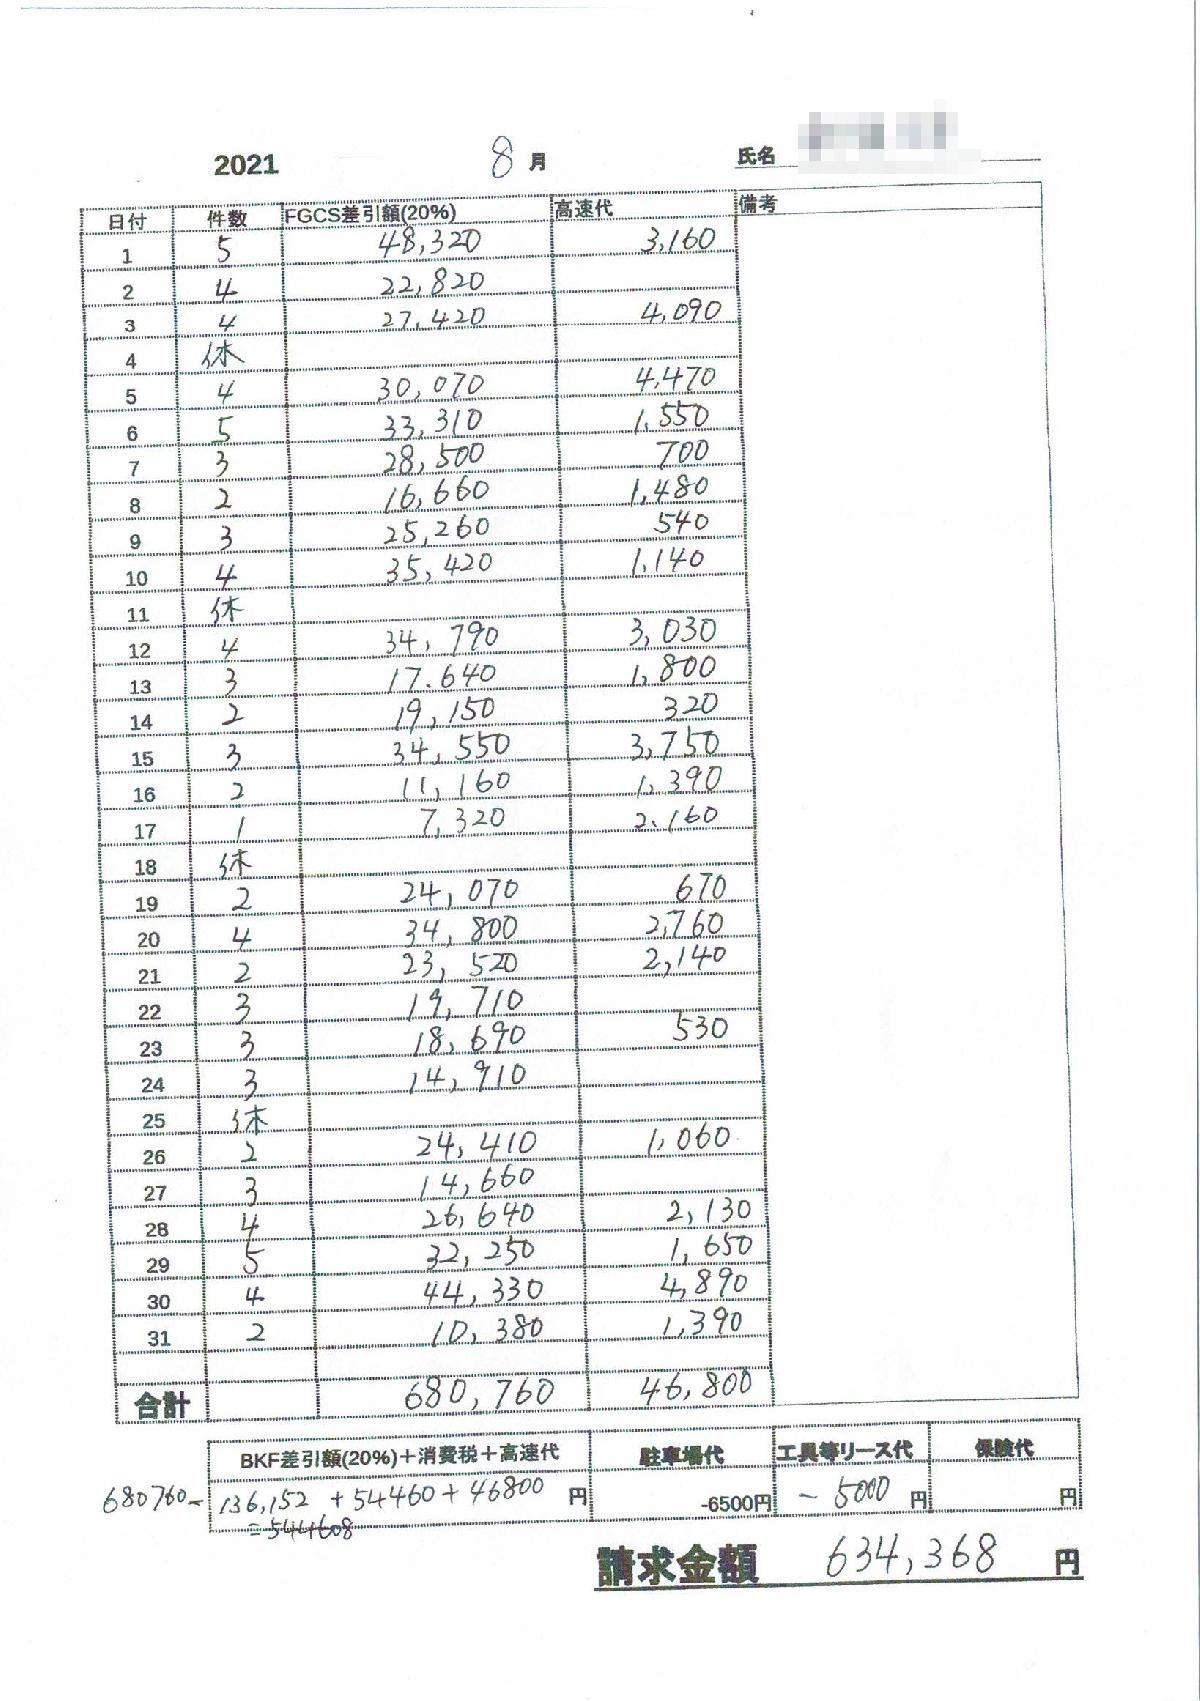 2021 8 月 氏名
日付 件数 FGCS差引額(20%) 高速代 備考
1 5 48,320 3,160
2 4 22,820
3 4 27,420 4,090
4 休
5 4 30,070 4,470
6 5 33,310 1,550
7 3 28,500 700
8 2 16,660 1,480
9 3 25,260 540
10 4 35,420 1,140
11 休
12 4 34,790 3,030
13 3 17.640 1,800
14 2 19,150 320
15 3 34,550 3,750
16 2 11,160 1,390
17 1 7,320 2,160
18 休
19 2 24,070 670
20 4 34,800 2,760
21 2 23,520 2,140
22 3 19,710
23 3 18,690 530
24 3 14,910
25 休
26 2 24,410 1,060
27 3 14,660
28 4 26,640 2,130
29 5 32,250 1,650
30 4 44,330 4,890
31 2 10,380 1,390
合計 680,760 46,800
BKF差引額(20%)+消費税+高速代 駐車場代 工具等リース代 保険代
680760- 136,152 + 54460 + 46800 円 -6500円 - 5000 円 円
=544608
請求金額 634,368 円